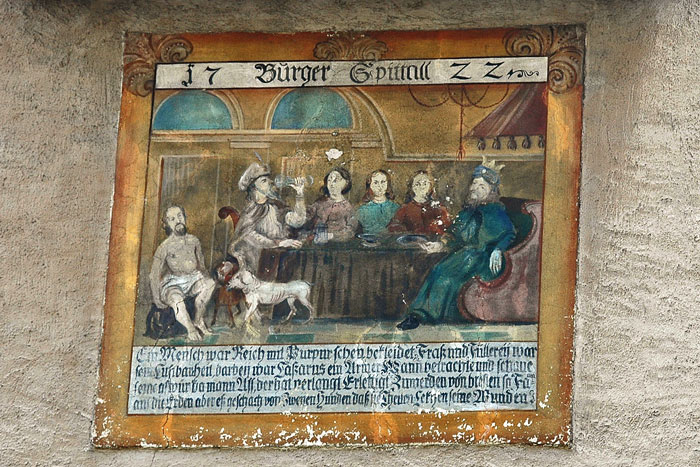 17 Bürger Spittill 22
Ein Mensch war Reich mit Purpur schen bekleidet, Fraß und Füllereÿ war
sein Lustbarheit darben war Laßarus ein Armer Mann betrachte und schaue
ba mann der hat verlangt Zuwerden von so
auf die Erden aber es geschach von Zweyen Hunden daß sie Lekzen seine Wunden